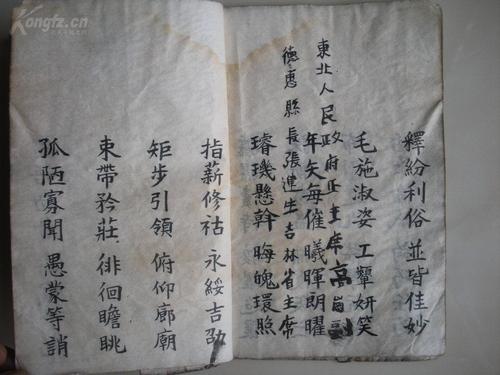 Kongfz.cn
釋紛利俗 並皆佳妙
毛施淑姿 工顰妍笑
東北人民政府正主席高崗副
年矢每催 曦暉朗曜
德惠縣長張建生吉林省主席
璿璣懸幹 晦魄環照
指薪修祜 永綏吉劭
矩步引領 俯仰廊廟
束帶矜莊 徘徊瞻眺
孤陋寡聞 愚蒙等誚